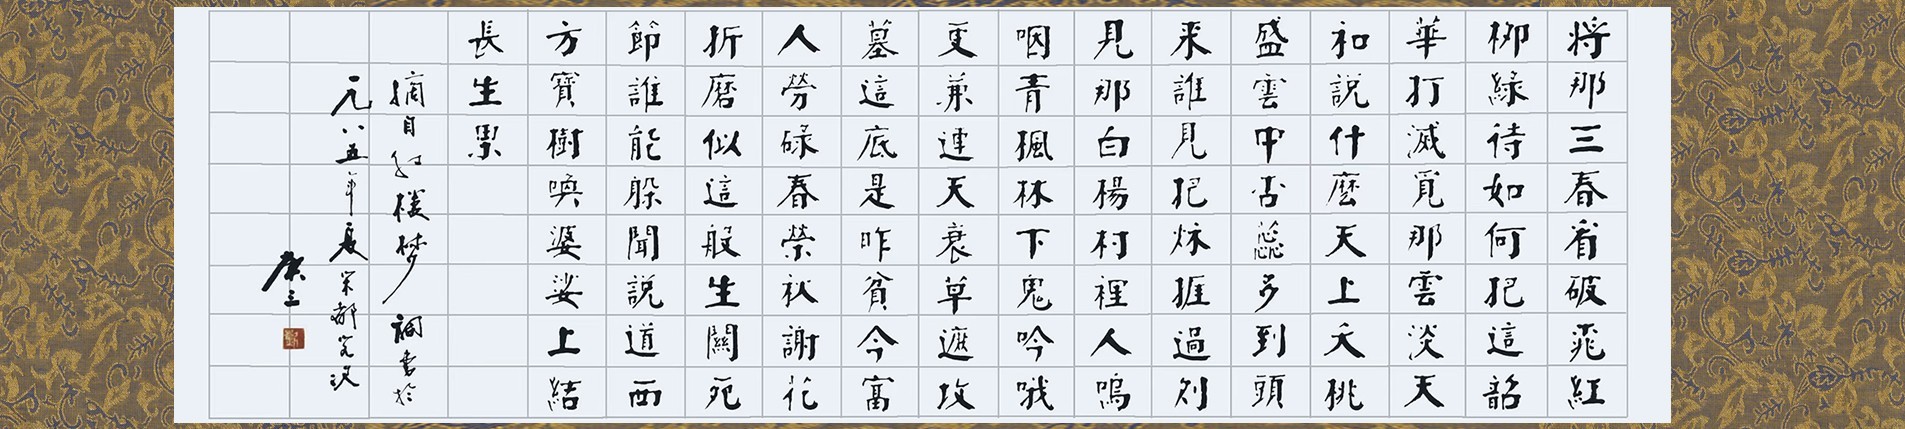 將那三春看破桃紅
柳緑待如何把這韶
華打滅覓那雲淡天
和説什麽天上夭桃
盛雲中杏蕊多到頭
来誰見把秋捱過则
見那白楊村裡人嗚
咽青楓林下鬼吟哦
更兼連天衰草遮坟
墓這底是昨貧今富
人勞碌春榮秋謝花
折磨似這般生關死
節誰能躲聞説道西
方寶樹喚婆娑上結
長生果
摘自红楼梦詞書於
一九八五年夏宋都客次